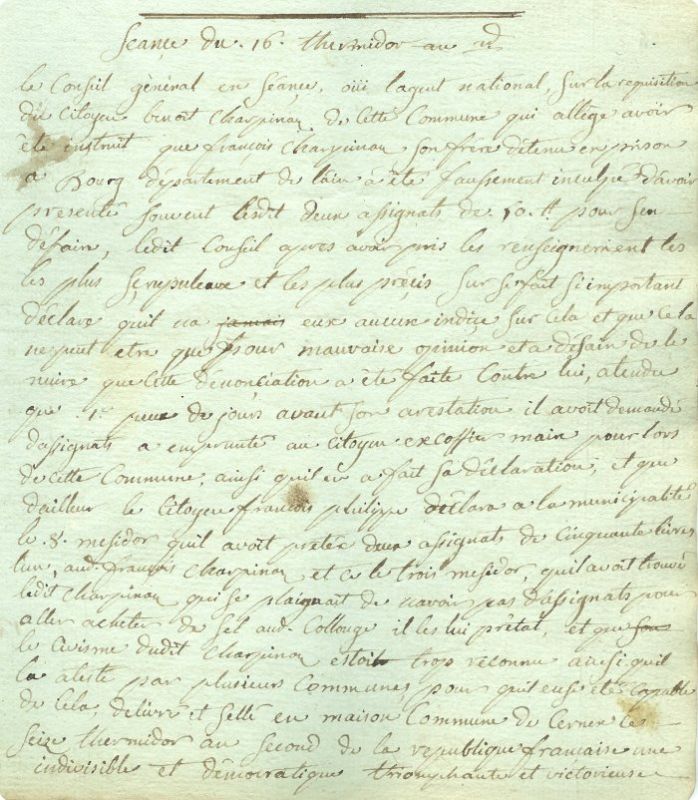 Séance du 16 thermidor an 2d
le Conseil général en Séance, oüi lagent national, Sur la requisition
du Citoyen benoit Charpinaz de Cette Commune qui allège avoir
été instruit que françois Charpinaz Son frère détenu en prison
a Bourg département de lain a été faussement inculpé davoir
presenté Souvent lesdit deux assignats de 50 ₶ pour Sen
défaire, ledit Conseil apres avoir pris les renseignement les
les plus Scrupuleux et les plus précis Sur Se fait Si important
déclare quil na jamais eux aucune indice Sur Cela et que Cela
ne peut etre que pour mauvaise opinion et a désair de le
nuire que Cette dénonciation a été faite Contre lui, atendu
que 1° peux de jours avant Son arestation il avoit demandé
dassignats a emprunté au Citoyen excoffier main pour lors
de Cette Commune, ainsi quil en a fait Sa déclaration, et que
dailleur le Citoyen françois philippe déclara a la municipalité
le 8. mesidor quil avoit pretér deux assignats de Cinquante livres
lun, aud. françois Charpinaz et Ce le trois mesidor, quil avoit trouvé
ledit Charpinaz qui Se plaignait de navoir pas dassignats pour
aller acheter du Sel aud. Collonge il les lui prêtat, et que Son
le Civisme dudit Charpinaz estoit trop reconnu ainsi quil
la atesté par plusieurs Communes pour quil eusse été Capable
de Cela, delivré et Sellé en maison Commune de Cerner les
Seize thermidor an Second de la republique francaise une
indivisible et démocratique triomphante et victorieuse